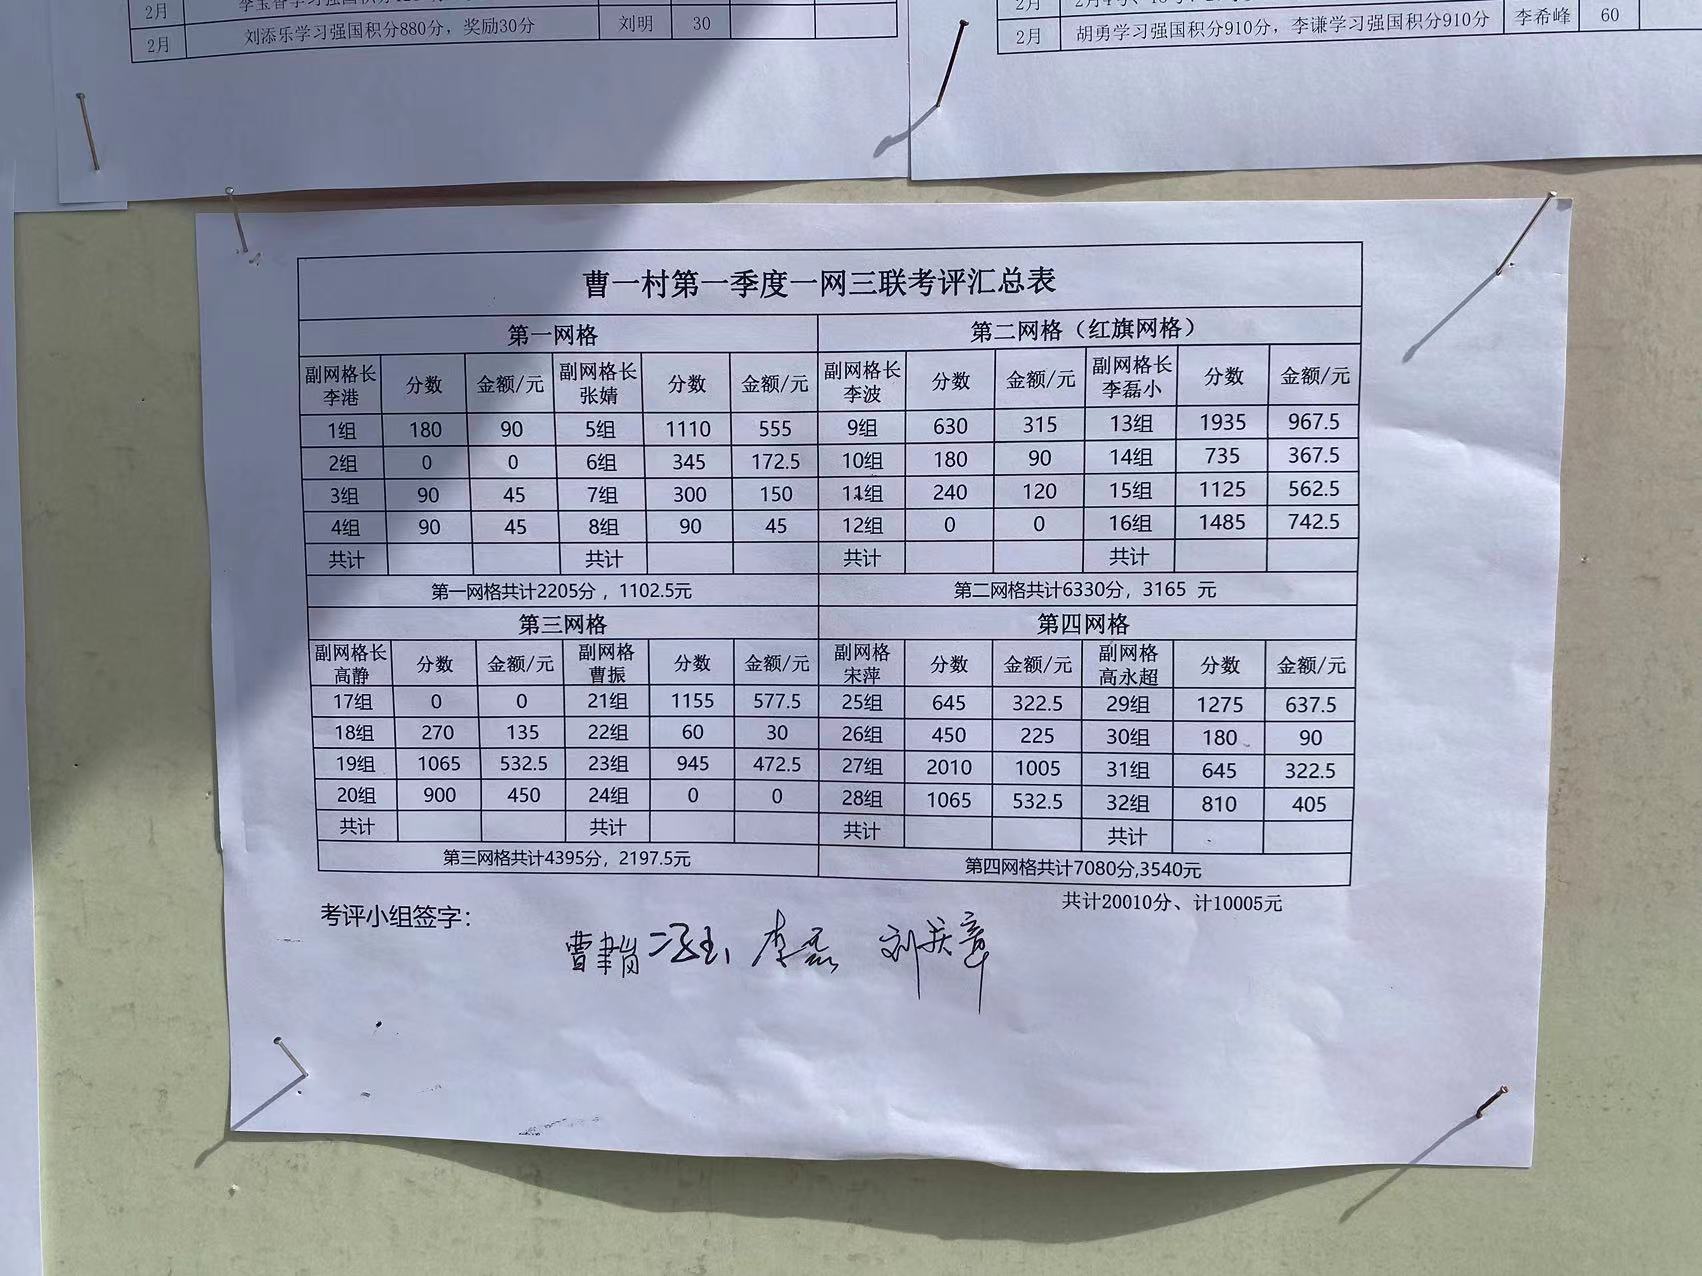 2月
2月 刘添乐学习强国积分880分，奖励30分 刘明 30
2月
2月 胡勇学习强国积分910分，李谦学习强国积分910分 李希峰 60
曹一村第一季度一网三联考评汇总表
第一网格 第二网格（红旗网格）
副网格长李港 分数 金额/元 副网格长张婧 分数 金额/元 副网格长李波 分数 金额/元 副网格长李磊小 分数 金额/元
1组 180 90 5组 1110 555 9组 630 315 13组 1935 967.5
2组 0 0 6组 345 172.5 10组 180 90 14组 735 367.5
3组 90 45 7组 300 150 11组 240 120 15组 1125 562.5
4组 90 45 8组 90 45 12组 0 0 16组 1485 742.5
共计 共计 共计 共计
第一网格共计2205分，1102.5元 第二网格共计6330分，3165 元
第三网格 第四网格
副网格长高静 分数 金额/元 副网格曹振 分数 金额/元 副网格宋萍 分数 金额/元 副网格高永超 分数 金额/元
17组 0 0 21组 1155 577.5 25组 645 322.5 29组 1275 637.5
18组 270 135 22组 60 30 26组 450 225 30组 180 90
19组 1065 532.5 23组 945 472.5 27组 2010 1005 31组 645 322.5
20组 900 450 24组 0 0 28组 1065 532.5 32组 810 405
共计 共计 共计 共计
第三网格共计4395分，2197.5元 第四网格共计7080分,3540元
共计20010分、计10005元
考评小组签字：
李磊 刘庆章